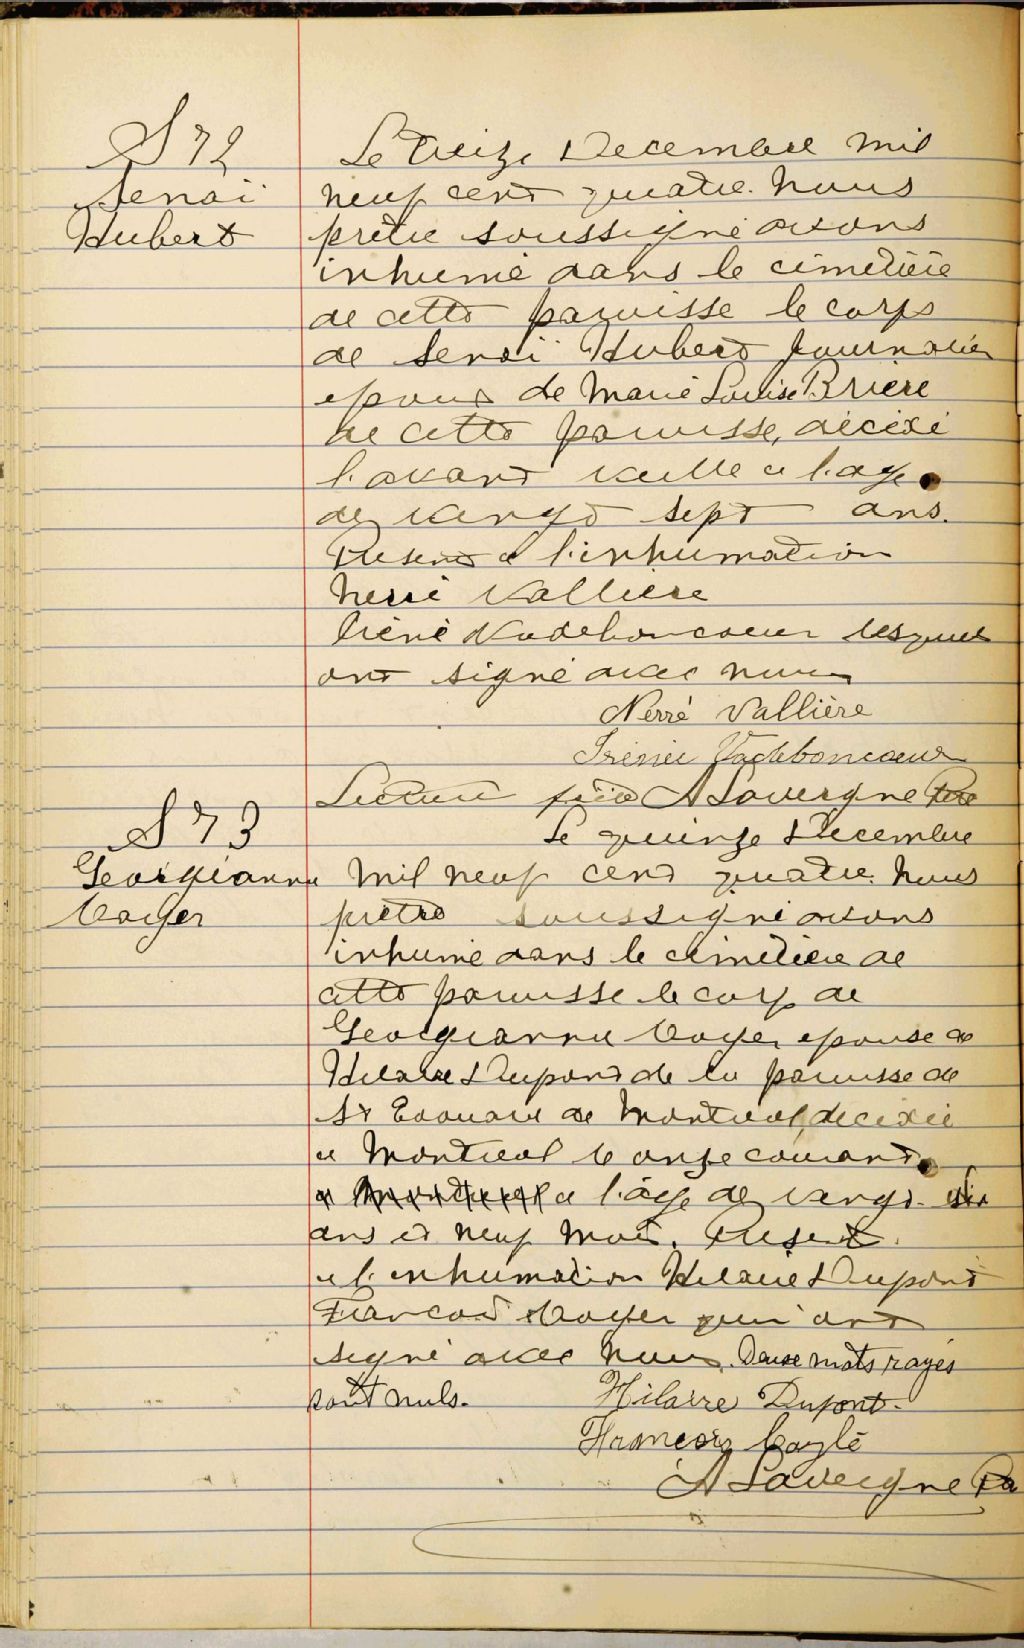 S 72
Senaï
Hubert
Le treize Decembre mil
neuf cent quatre. Nous
prêtre soussigné avons
inhumé dans le cimetière
de cette paroisse le corps
de Senaï Hubert journalier
epoux de Marie Louise Brière
de cette paroisse, décédé
l'avant veille a l'age
de vingt sept ans.
Present a l'inhumation
Nerré Vallière
Iréné Vadeboncoeur lesquels
ont signé avec nous
Nerré Vallière
Irénée Vadeboncoeur
Lecture faite A Lavergne Ptre
S 73
Georgianna
Cayer
Le quinze Decembre
mil neuf cent quatre. Nous
prêtre soussigné avons
inhumé dans le cimetière de
cette paroisse le corps de
Georgianna Cayer epouse de
Hilaire Dupont de la paroisse de
St Edouard de Montreal, decedée
a Montreal le onze courant
a l'âge de vingt-six
ans et neuf mois. Present
a l'inhumation Hilaire Dupont
Francois Cayer qui ont
signé avec nous. Deux mots rayés
sont nuls.
Hilaire Dupont.
Francois Caylé
A Lavergne Ptre